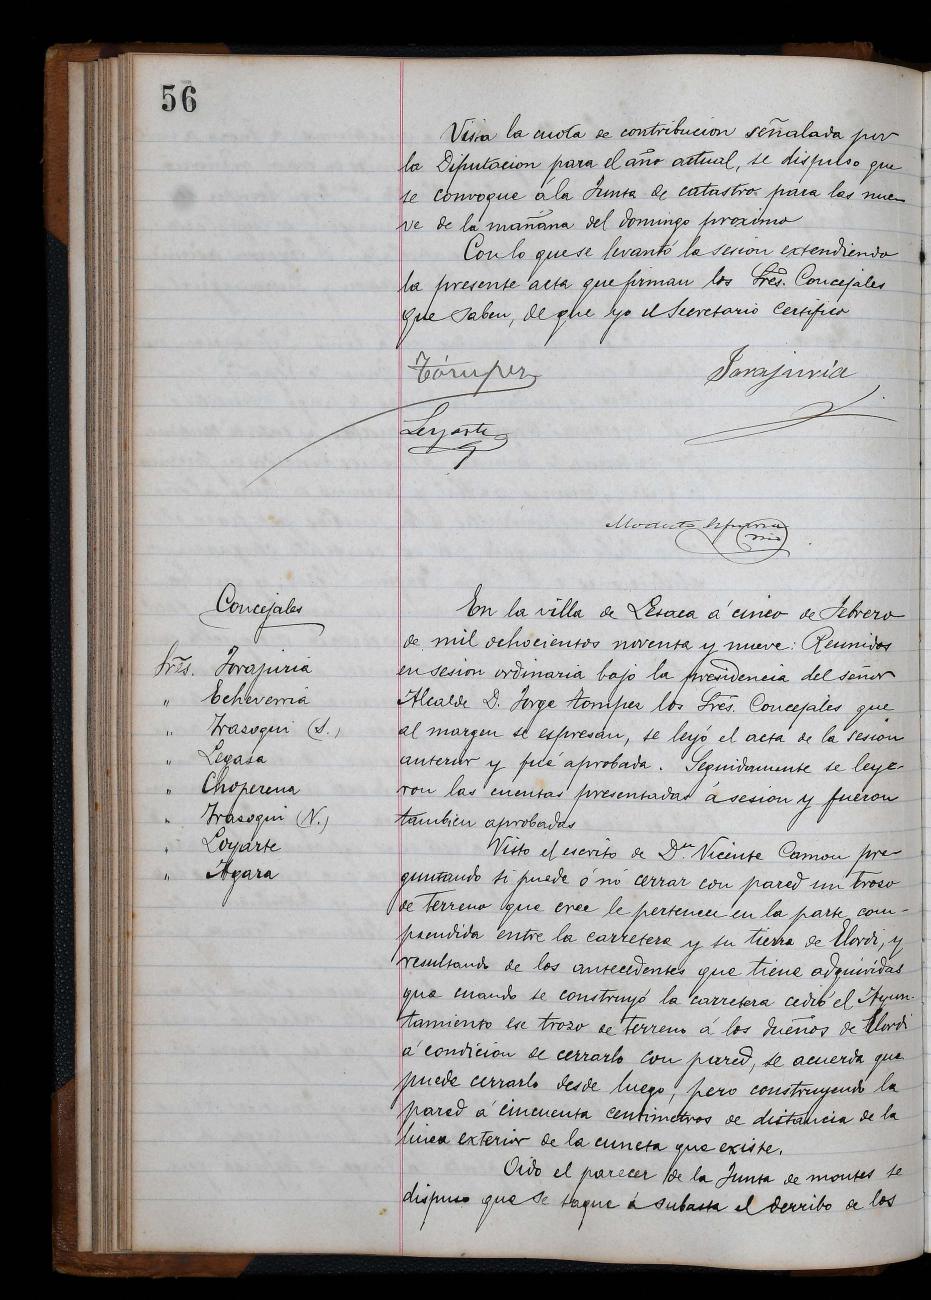 56
Vista la cuota de contribucion señalada por
la Diputacion para el año actual, se dispuso que
se convoque á la Junta de catastro para las nue-
ve de la mañana del domingo proximo
Con lo que se levantó la sesion extendiendo
la presente acta que firman los Sres. Concejales
que saben, de que yo el Secretario certifico
Tómper
Jorajuria
Loyarte
Modesto
Concejales
Sres. Jorajuria
" Echeverria
" Irasoqui (S.)
" Legasa
" Choperena
" Irasoqui (N.)
" Loyarte
" Agara
En la villa de Lesaca á cinco de Febrero
de mil ochocientos noventa y nueve: Reunidos
en sesion ordinaria bajo la presidencia del señor
Alcalde D. Jorge Tomper los Sres. Concejales que
al margen se espresan, se leyó el acta de la sesion
anterior y fué aprobada. Seguidamente se leye-
ron las cuentas presentadas á sesion y fueron
tambien aprobadas
Visto el escrito de Dn. Vicente Camou pre-
guntando si puede ó nó cerrar con pared un troso
de terreno que cree le pertenece en la parte com-
prendida entre la carretera y su tierra de Elordi, y
resultando de los antecedentes que tiene adquiridas
que cuando se construyó la carretera cedió el Ayun-
tamiento ese trozo de terreno á los dueños de Elordi
á condicion de cerrarlo con pared, se acuerda que
puede cerrarlo desde luego, pero construyendo la
pared á cincuenta centimetros de distancia de la
linea exterior de la cuneta que existe.
Oido el parecer de la Junta de montes se
dispuso que se saque á subasta el derribo de los